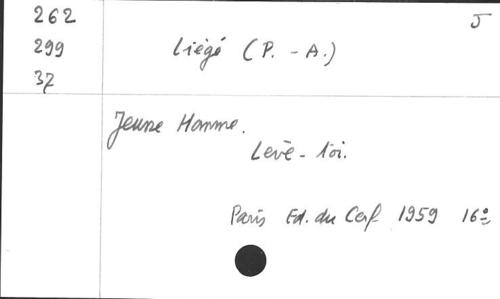 262
J
299
Liégé (P. - A.)
37
Jeune Homme.
Levè - toi.
Paris Ed. du Cerf 1959 16º